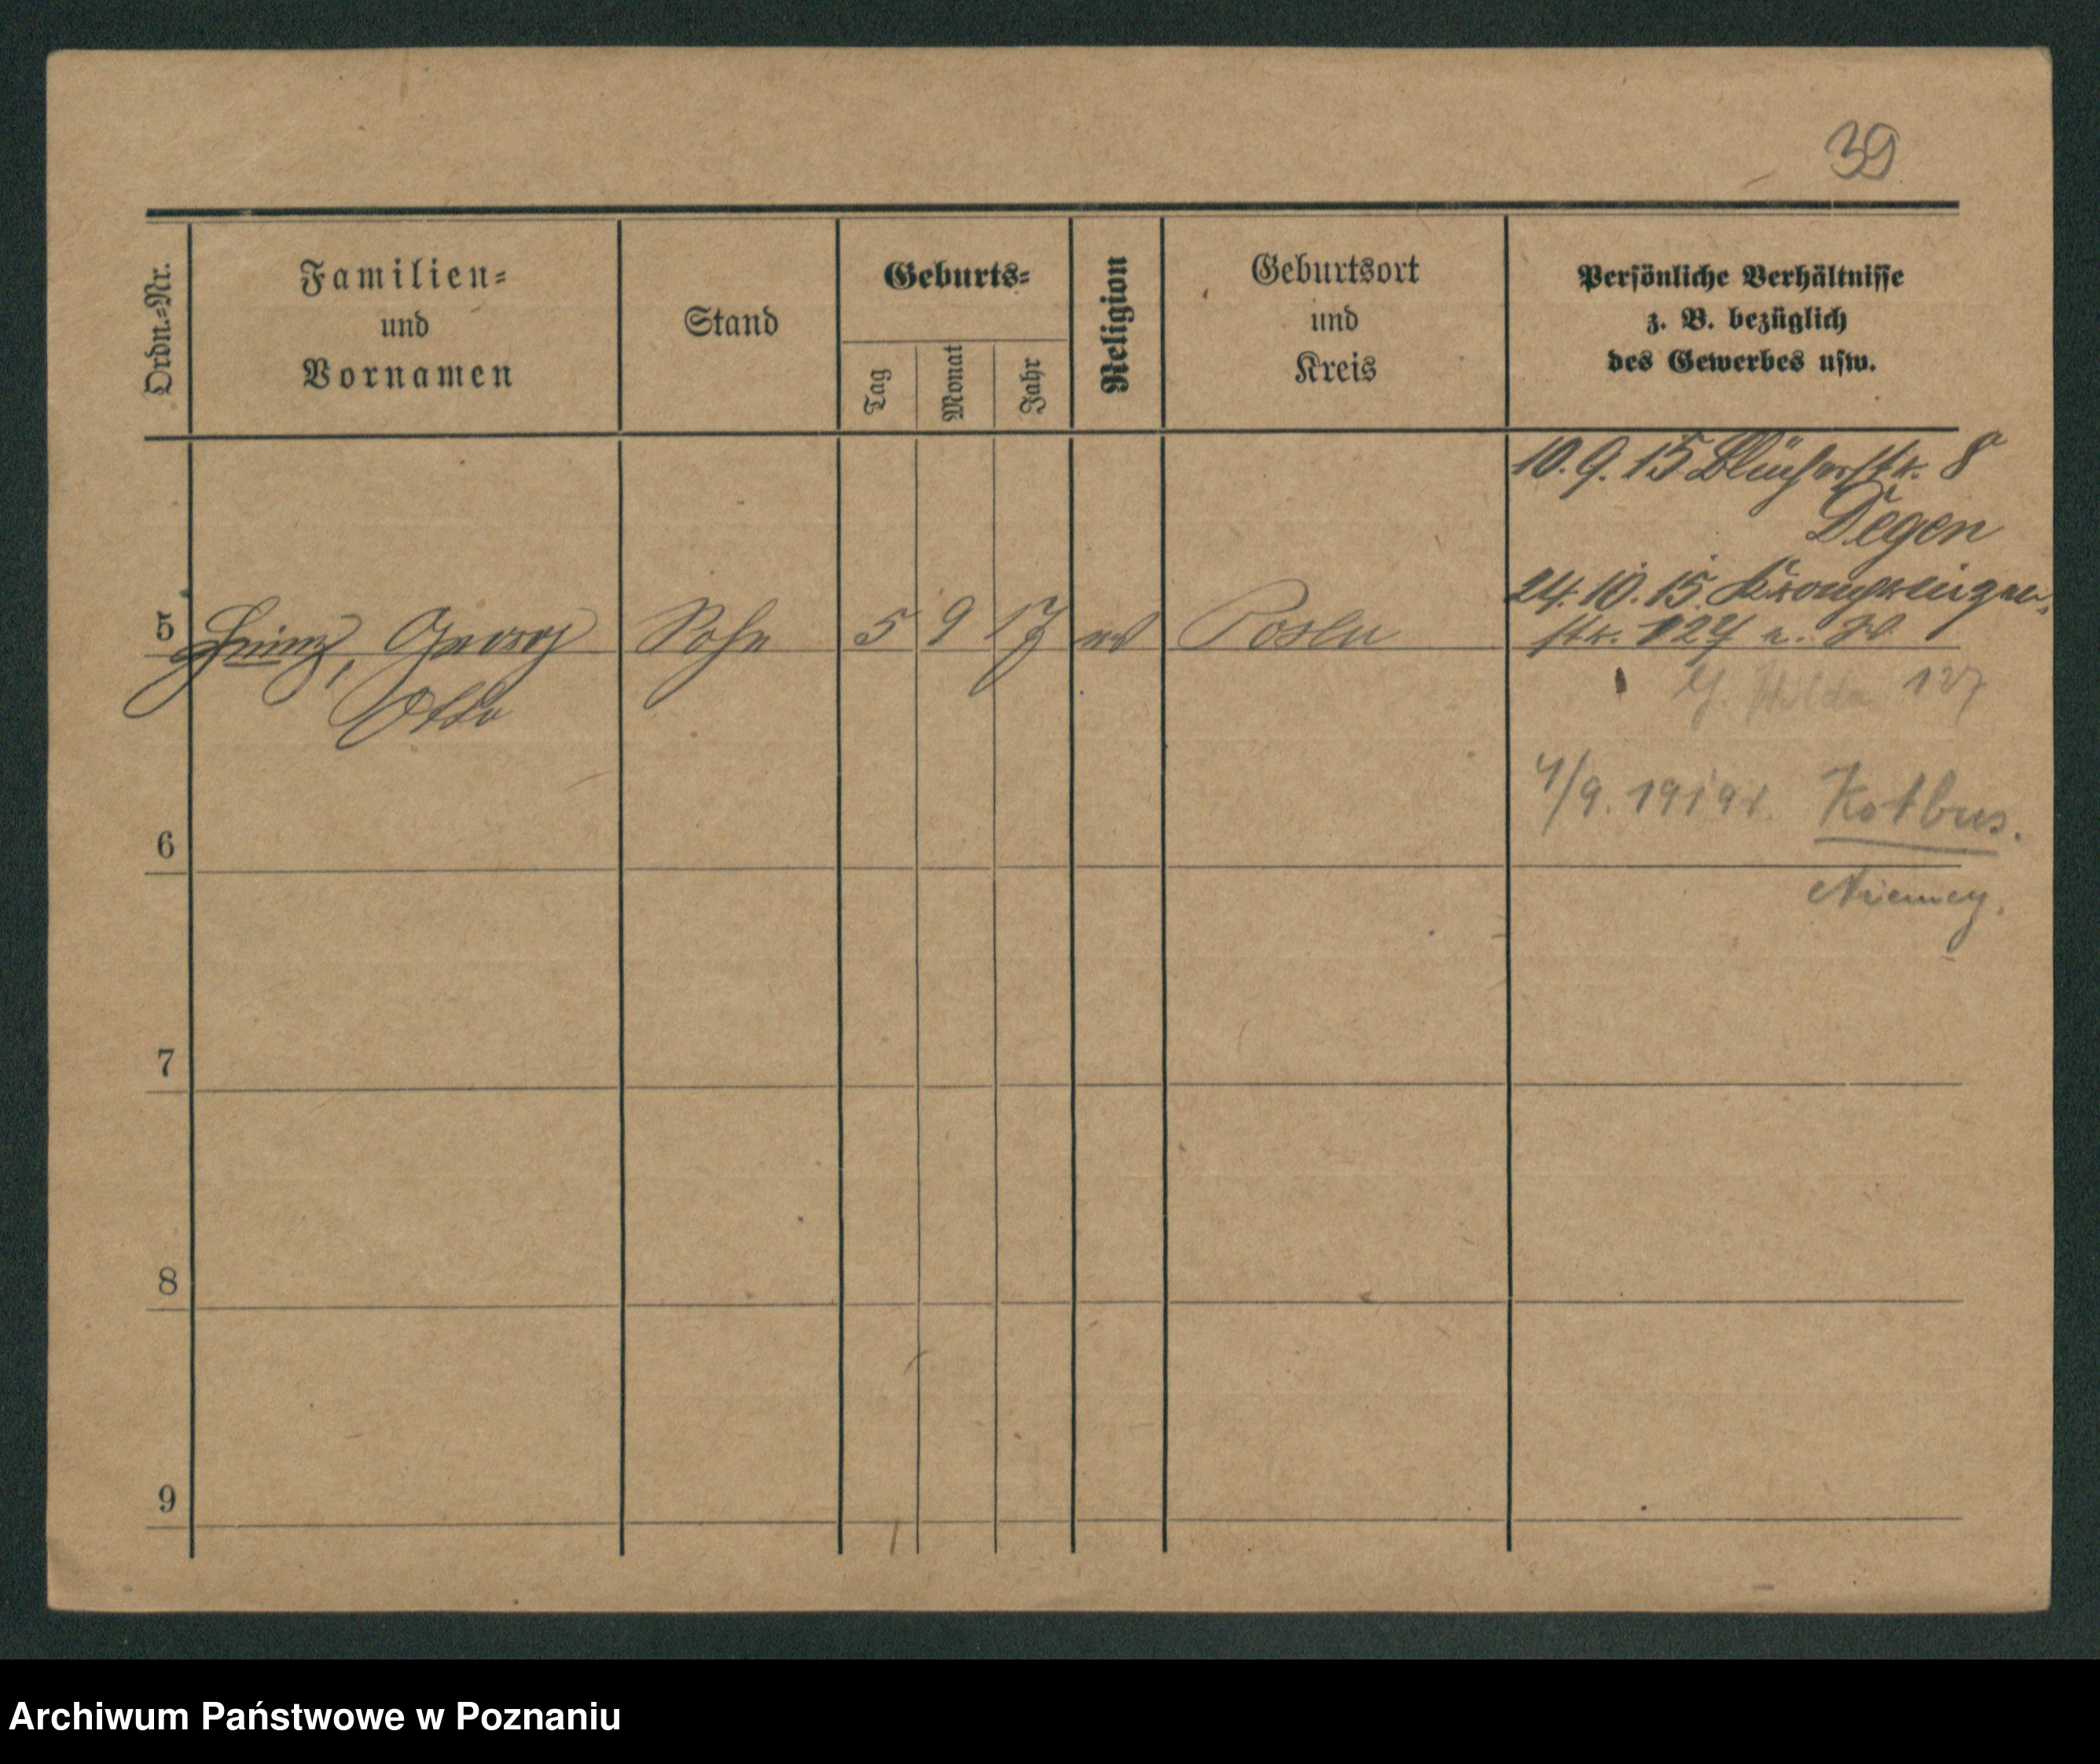 39
Ordn.=Nr.
Familien=
und
Vornamen
Stand
Geburts=
Tag
Monat
Jahr
Religion
Geburtsort
und
Kreis
Persönliche Verhältnisse
z. B. bezüglich
des Gewerbes usw.
10. 9. 15 Blücherstr. 8
Degen
24. 10. 15. Kronprinzen-
str. 127
5 Heinz, Georg Sohn 5 9 17 ev Posen
Otto
G. Wilda 127
4/9. 1919 Kotbus.
6
Niemcy.
7
8
9
Archiwum Państwowe w Poznaniu